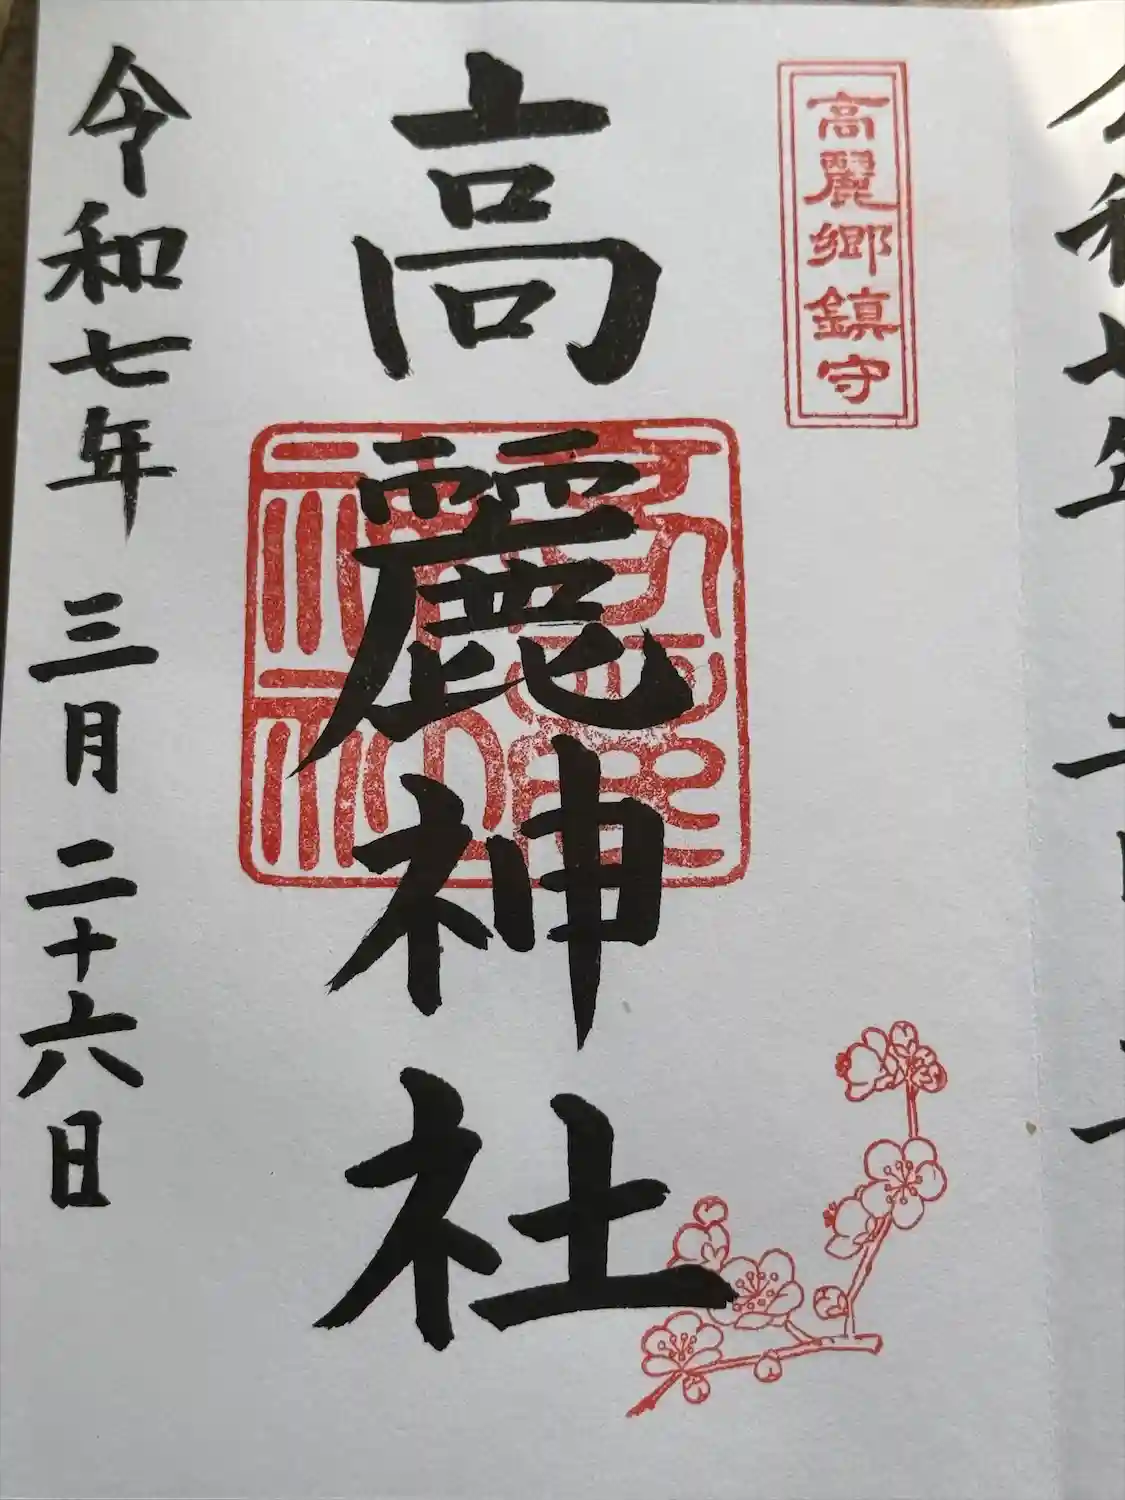 高麗郷鎮守
高麗神社
令和七年 三月 二十六日